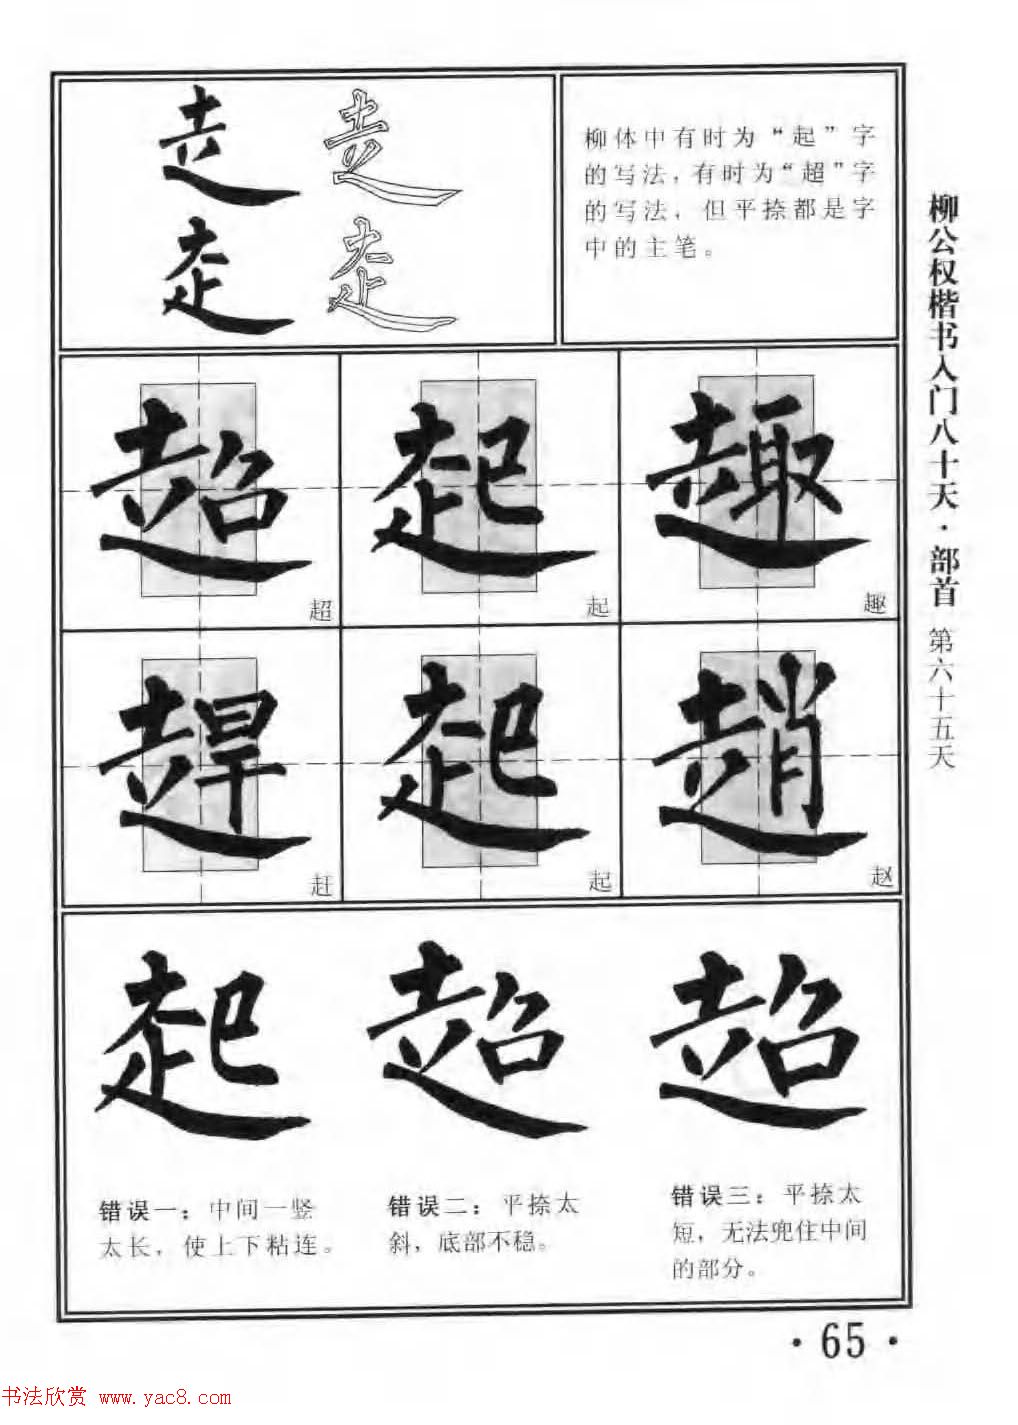 柳体中有时为“起”字
的写法，有时为“超”字
的写法，但平捺都是字
中的主笔。
柳公权楷书入门八十天·部首 第六十五天
走 走
走 走
超 起 趣
超 起 趣
趕 起 趙
赶 起 赵
起 超 超
错误一：中间一竖
太长，使上下粘连。
错误二：平捺太
斜，底部不稳。
错误三：平捺太
短，无法兜住中间
的部分。
·65·
书法欣赏 www.yac8.com